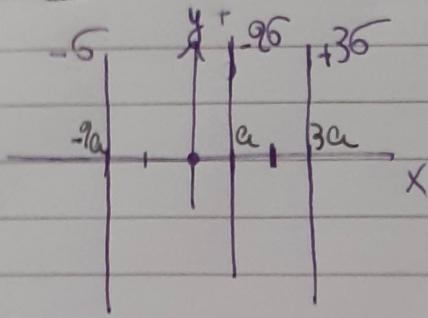 -σ y -2σ +3σ
-2a a 3a
x